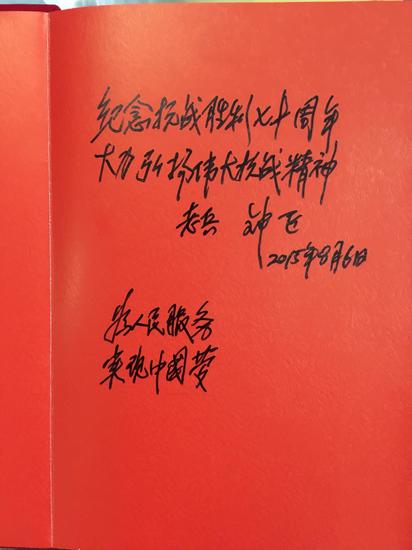 纪念抗战胜利七十周年
大力弘扬伟大抗战精神
老兵
2015年8月6日
为人民服务
实现中国梦